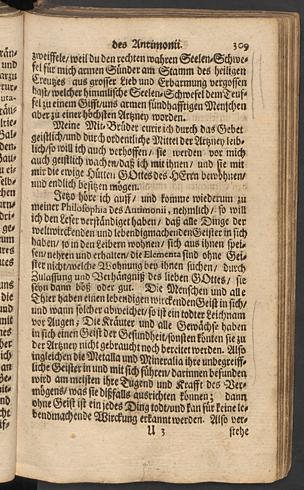 des Antimonii. 309
zweiffele/ weil du den rechten wahren Seelen-Schwe-
fel für mich armen Sünder am Stamm des heiligen
Creutzes aus grosser Lieb und Erbarmung vergossen
hast/ welcher himmlische Seelen-Schwefel dem Teuf-
fel zu einem Gifft/ uns armen sündhafftigen Menschen
aber zu einer höchsten Artzney worden.
Meine Mit-Brüder curir ich durch das Gebet
geistlich/ und durch ordentliche Mittel der Artzney leib-
lich/ so will ich auch verhoffen/ sie werden vor mich
auch geistlich wachen/ daß ich mit ihnen/ und sie mit
mir die ewige Hütten GOttes des HErrn bewohnen/
und endlich besitzen mögen.
Jetzo höre ich auff/ und komme wiederum zu
meiner Philosophia des Antimonii, nehmlich/ so will
ich den Leser verständiget haben/ daß alle Dinge der
weltwirckenden und lebendigmachenden Geister in sich
haben/ so in den Leibern wohnen/ sich aus ihnen spei-
sen/ nehren und erhalten/ die Elementa sind ohne Gei-
ster nicht/ welche Wohnung bey ihnen suchen/ durch
Zulassung und Verhängniß des lieben GOttes/ sie
seyn dann böß oder gut. Die Menschen und alle
Thier haben einen lebendigen wirckenden Geist in sich/
und wann solcher abweichet/ so ist ein todter Leichnam
vor Augen; Die Kräuter und alle Gewächse haben
in sich einen Geist der Gesundheit/ sonsten könten sie zu
der Artzney nicht gebraucht noch bereitet werden. Also
ingleichen die Metalla und Mineralia ihre unbegreiff-
liche Geister in und mit sich führen/ darinnen befunden
wird am meisten ihre Tugend und Krafft des Ver-
mögens/ was sie dißfalls ausrichten können; dann
ohne Geist ist ein jedes Ding todt/ und kan für keine le-
bendmachende Wirckung erkannt werden. Also ver-
U 3 stehe